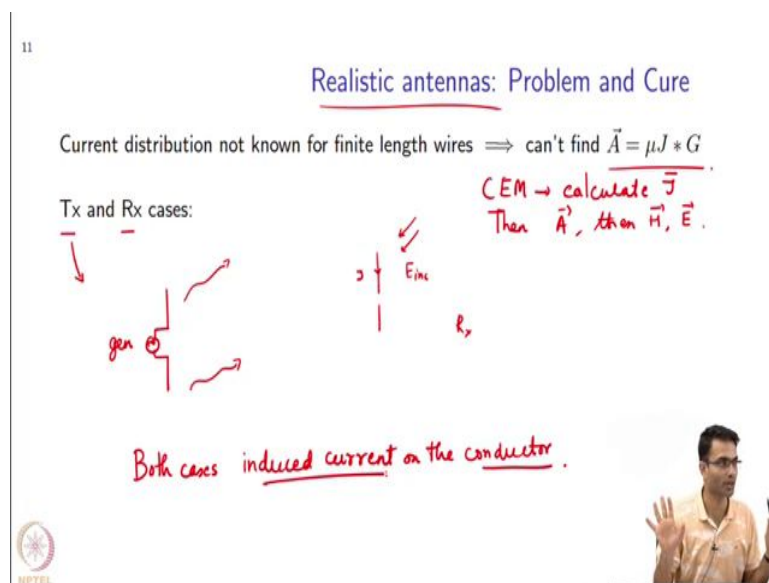 11
Realistic antennas: Problem and Cure
Current distribution not known for finite length wires ⟹ can't find $\vec{A} = \mu J * G$
CEM → calculate $\vec{J}$
Then $\vec{A}$, then $\vec{H}$, $\vec{E}$.
Tx and Rx cases:
gen
J
E_inc
R_x
Both cases induced current on the conductor.
NPTEL